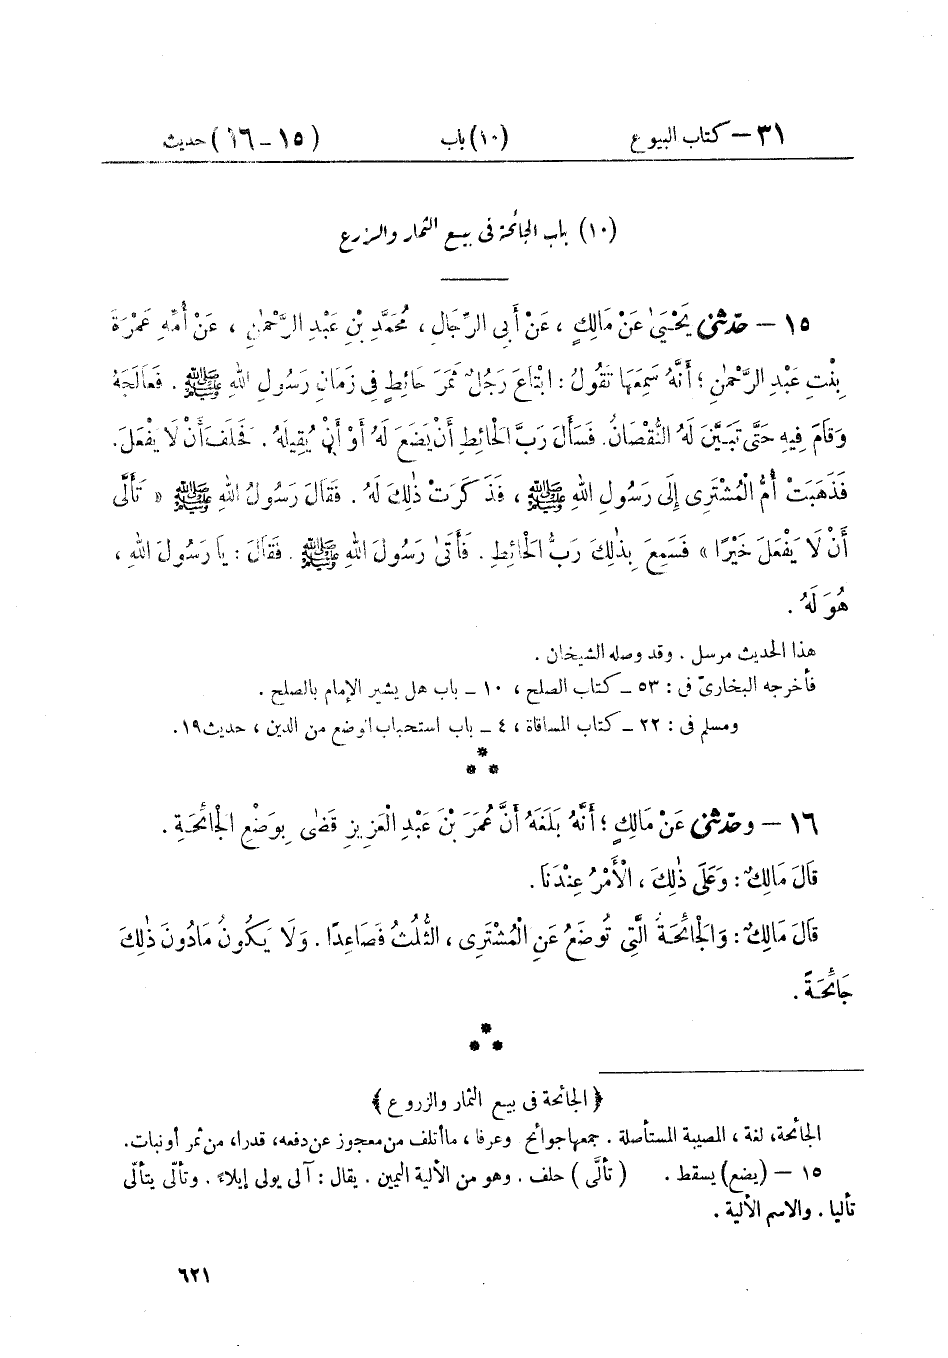 ٣١ – كتاب البيوع (١٠) باب (١٥ – ١٦) حديث
(١٠) باب الجائحة فى بيع الثمار والزرع
١٥ – حَدَّثَنِى يَحْيَىٰ عَنْ مَالِكٍ ، عَنْ أَبِى الرِّجَالِ ، مُحَمَّدِ بْنِ عَبْدِ الرَّحْمٰنِ ، عَنْ أُمِّهِ عَمْرَةَ
بِنْتِ عَبْدِ الرَّحْمٰنِ ؛ أَنَّهُ سَمِعَهَا تَقُولُ : ابْتَاعَ رَجُلٌ ثَمَرَ حَائِطٍ فِى زَمَانِ رَسُولِ اللهِ ﷺ . فَعَالَجَهُ
وَقَامَ فِيهِ حَتَّى تَبَيَّنَ لَهُ النُّقْصَانُ. فَسَأَلَ رَبَّ الْحَائِطِ أَنْ يَضَعَ لَهُ أَوْ أَنْ يُقِيلَهُ . فَحَلَفَ أَنْ لَا يَفْعَلَ.
فَذَهَبَتْ أُمُّ الْمُشْتَرِى إِلَى رَسُولِ اللهِ ﷺ ، فَذَكَرَتْ ذٰلِكَ لَهُ . فَقَالَ رَسُولُ اللهِ ﷺ « تَأَلَّى
أَنْ لَا يَفْعَلَ خَيْرًا » فَسَمِعَ بِذٰلِكَ رَبُّ الْحَائِطِ . فَأَتَىٰ رَسُولَ اللهِ ﷺ . فَقَالَ : يَا رَسُولَ اللهِ ،
هُوَ لَهُ .
هذا الحديث مرسل . وقد وصله الشيخان .
فأخرجه البخارىّ فى : ٥٣ – كتاب الصلح ، ١٠ – باب هل يشير الإمام بالصلح .
ومسلم فى : ٢٢ – كتاب المساقاة ، ٤ – باب استحباب الوضع من الدين ، حديث ١٩ .
١٦ – وحَدَّثَنِى عَنْ مَالِكٍ ؛ أَنَّهُ بَلَغَهُ أَنَّ عُمَرَ بْنَ عَبْدِ الْعَزِيزِ قَضَى بِوَضْعِ الْجَائِحَةِ .
قَالَ مَالِكٌ : وَعَلَى ذٰلِكَ ، الْأَمْرُ عِنْدَنَا .
قَالَ مَالِكٌ : وَالْجَائِحَةُ الَّتِى تُوضَعُ عَنِ الْمُشْتَرِى ، الثُّلُثُ فَصَاعِدًا . وَلَا يَكُونُ مَا دُونَ ذٰلِكَ
جَائِحَةً .
﴿ الجائحة فى بيع الثمار والزروع ﴾
الجائحة، لغة ، المصيبة المستأصلة . جمعها جوائح وعرفا ، ما أتلف من معجوز عن دفعه، قدرا، من ثمر أو نبات.
١٥ – (يضع) يسقط . (تألَّى) حلف . وهو من الألية اليمين . يقال : آلى يولى إيلاءً . وتألّى يتألّى
تأليا . والاسم الألية .
٦٢١